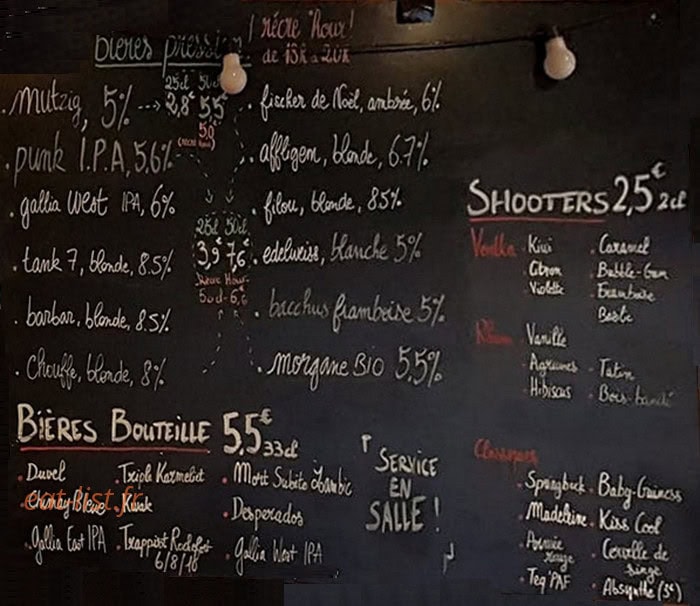 bières pression
récré "hour!
de 18h à 20h
25cl 50cl
. Mutzig, 5% --> 2,8€ 5,5
5,0
. punk I.P.A, 5,6%
. gallia West IPA, 6%
. tank 7, blonde, 8.5%
. barbar, blonde, 8.5%
. Chouffe, blonde, 8%
25cl 50cl.
3,9€ 7,6€
Hour
50cl - 6,6
. fischer de Noël, ambrée, 6%
. affligem, blonde, 6.7%
. filou, blonde, 8.5%
. edelweiss, blanche 5%
. bacchus framboise 5%
. morgane BIO 5,5%
SHOOTERS 2,5€ 2cl
Vodka
. Kiwi
. Citron
. Violette
. Caramel
. Bubble-Gum
. Framboise
Rhum
. Vanille
. Agrumes
. Hibiscus
. Tatin
. Bois-bandé
Classiques
. Springbuck
. Madeleine
. Teq'PAF
. Baby-Guiness
. Kiss Cool
. Cervelle de
singe
. Absynthe (5€)
BIÈRES BOUTEILLE 5,5€ 33cl
. Duvel
. Chimay Bleue
. Gallia East IPA
. Triple Karmeliet
. Kwak
. Trappist Rochefort
6/8/10
. Mort Subite Lambic
. Desperados
. Gallia West IPA
SERVICE
EN
SALLE !
eat-list.fr